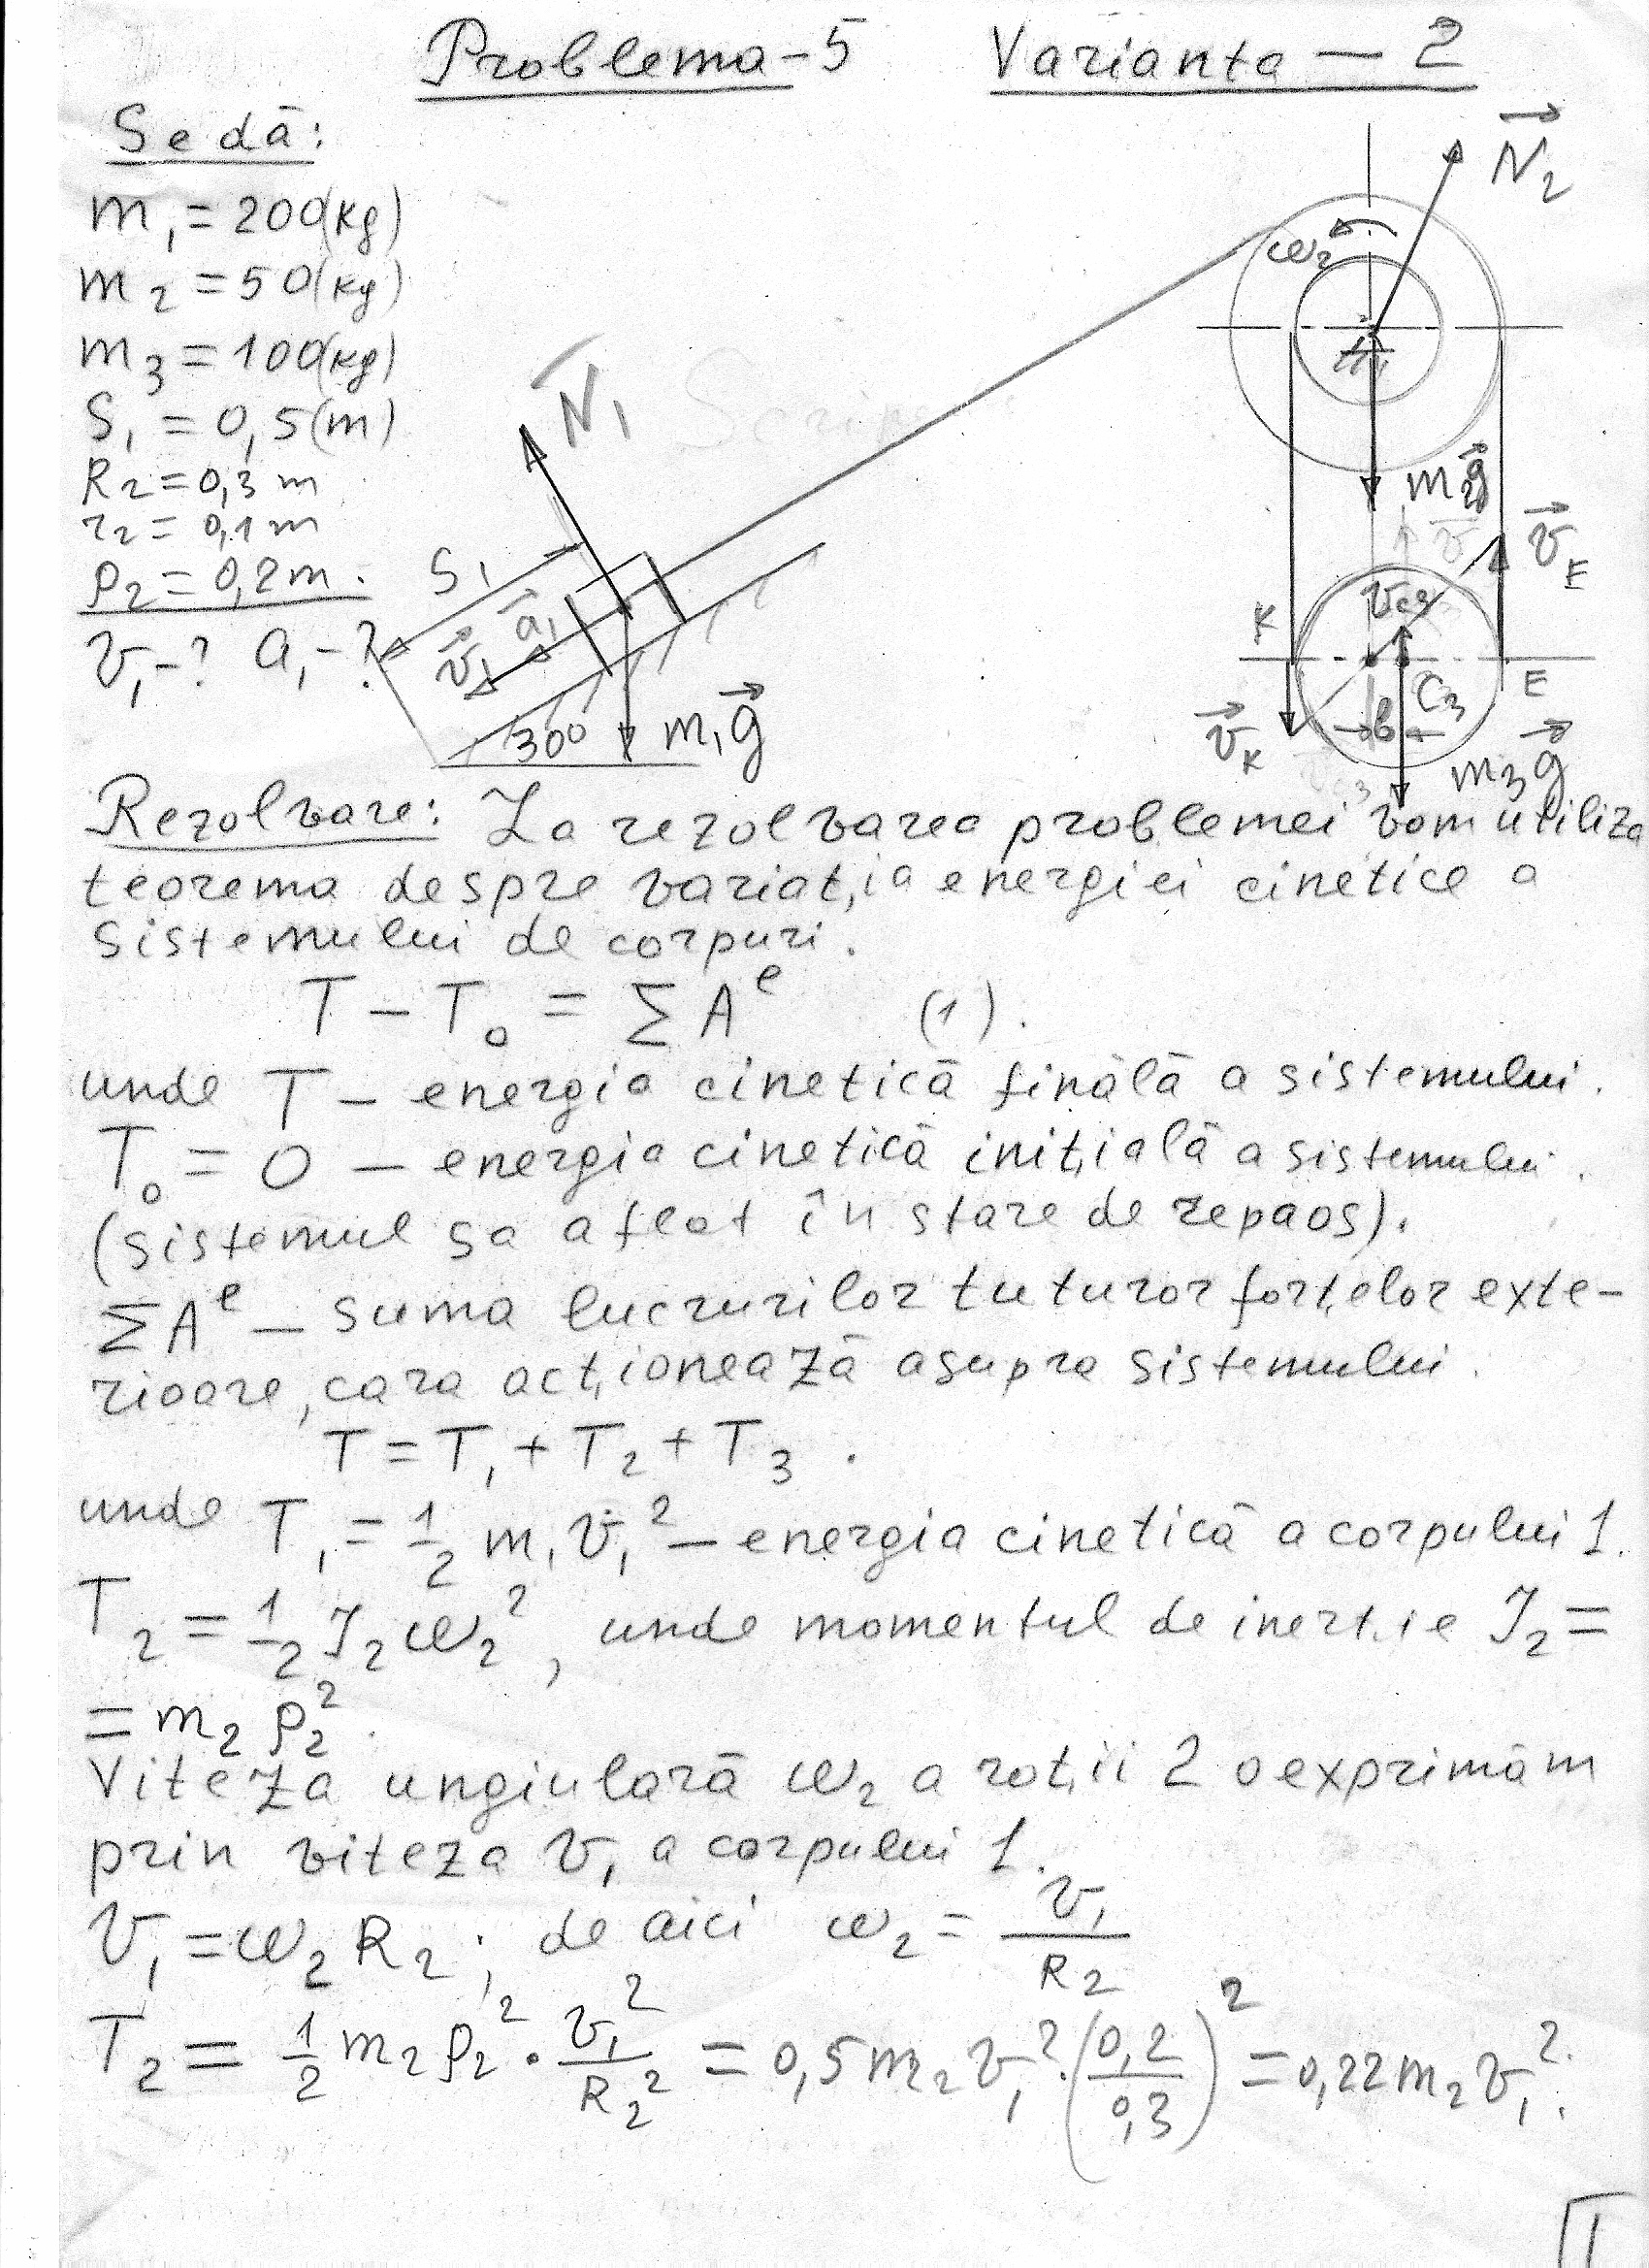 Problema-5 Varianta-2
Se dă:
m₁=200(kg)
m₂=50(kg)
m₃=100(kg)
S₁=0,5(m)
R₂=0,3m
r₂=0,1m
ρ₂=0,2m.
v₁-? a₁-?
N₁
S₁
a₁
v₁
30°
m₁g
N₂
ω₂
m₂g
v_E
v_c3
K
E
C₃
v_K
b
m₃g
Rezolvare: La rezolvarea problemei vom utiliza
teorema despre variaţia energiei cinetice a
sistemului de corpuri.
T-T₀=ΣAᵉ (1).
unde T - energia cinetică finălă a sistemului.
T₀=0 - energia cinetică iniţială a sistemului.
(sistemul sa aflat în stare de repaos).
ΣAᵉ - suma lucrurilor tuturor forţelor exte-
rioare, cara acţionează asupra sistemului.
T=T₁+T₂+T₃.
unde T₁=1/2 m₁v₁² - energia cinetică a corpului 1.
T₂=1/2 J₂ω₂², unde momentul de inerţie J₂=
=m₂ρ₂².
Viteza ungiulară ω₂ a roţii 2 o exprimăm
prin viteza v₁ a corpului 1.
v₁=ω₂R₂; de aici ω₂=v₁/R₂
T₂=1/2 m₂ρ₂²·v₁²/R₂²=0,5m₂v₁²·(0,2/0,3)²=0,22m₂v₁².